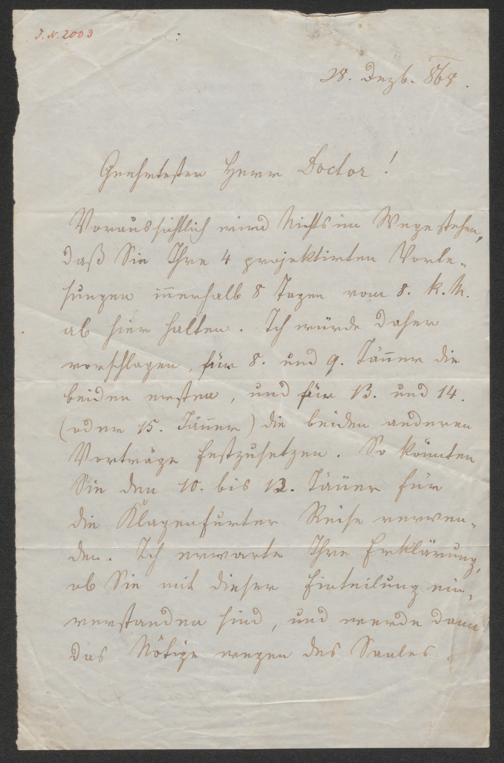 J. N. 2003
28. Dezb. 868.
Geehrtester Herr Doctor!
Voraussichtlich wird Nichts im Wege stehen,
daß Sie Ihre 4 projektirten Vorle-
sungen innerhalb 8 Tagen vom 8. k. M.
ab hier halten. Ich würde daher
vorschlagen, für 8. und 9. Jänner die
beiden ersten, und für 13. und 14.
(oder 15. Jänner) die beiden anderen
Vorträge festzusetzen. So könnten
Sie den 10. bis 12. Jänner für
die Klagenfurter Reise verwen-
den. Ich erwarte Ihre Erklärung,
ob Sie mit dieser Einteilung ein-
verstanden sind, und werde dann
das Nötige wegen des Saales